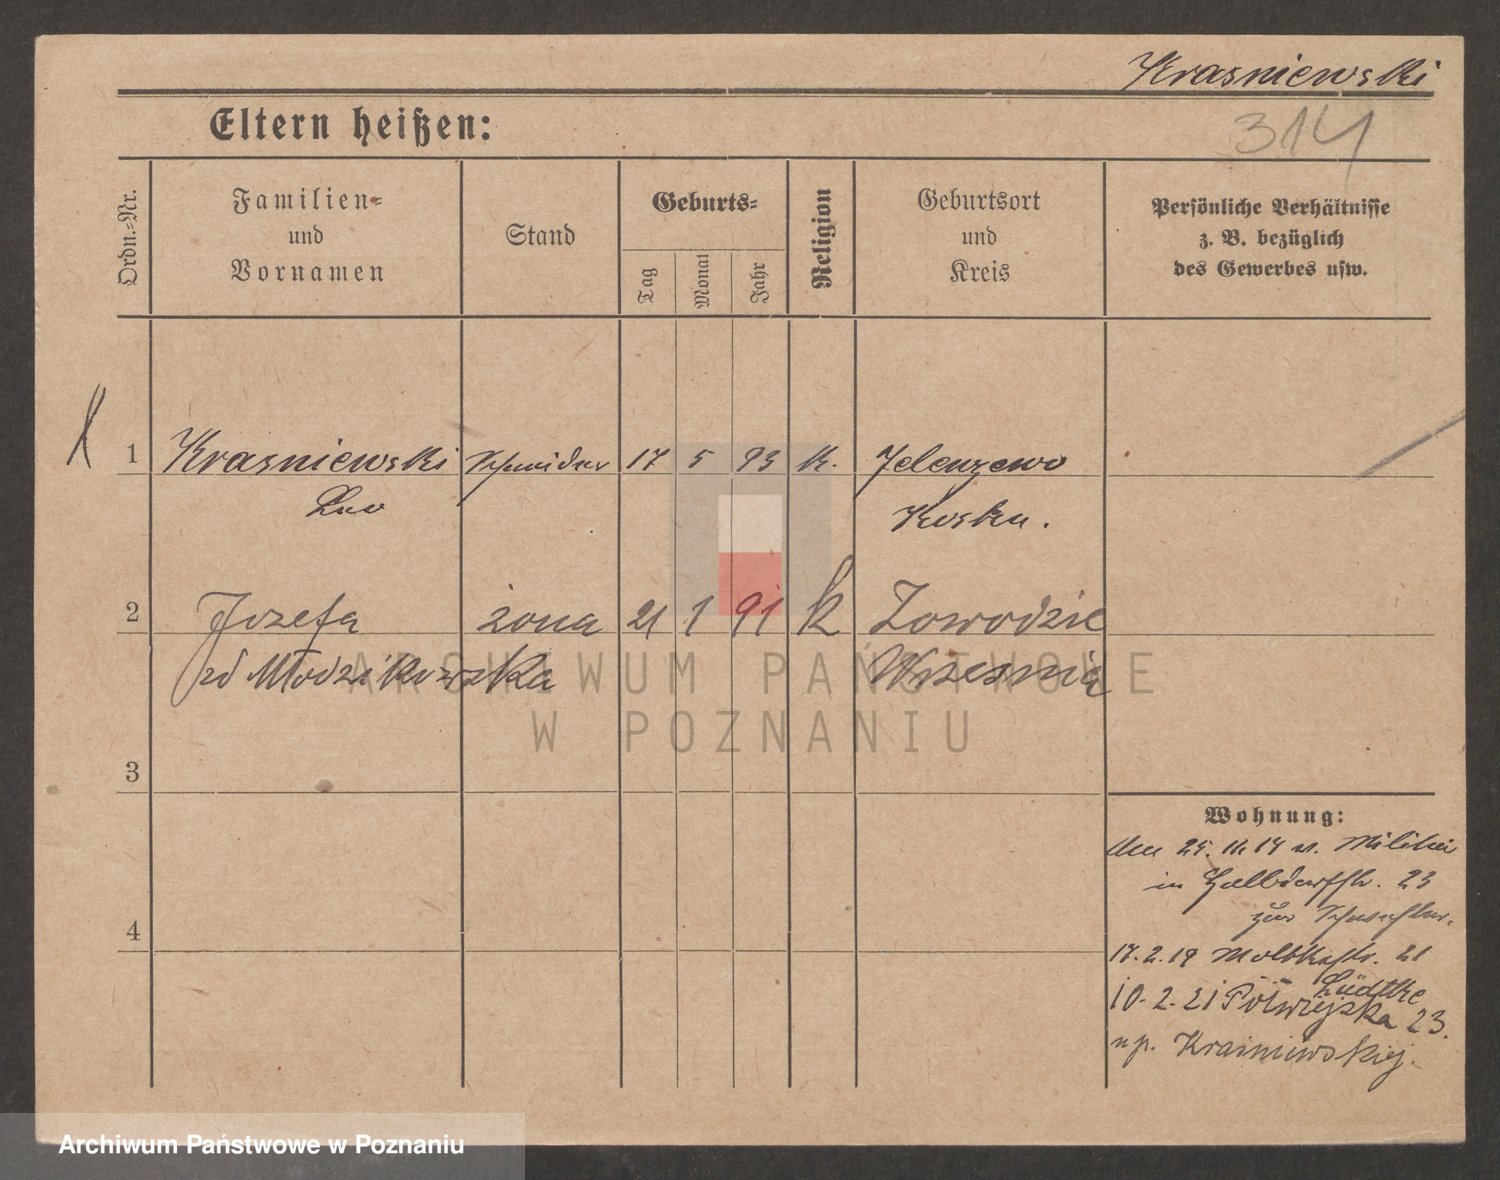 Krasniewski
314
Eltern heißen:
Ordn.-Nr.
Familien-
und
Vornamen
Stand
Geburts-
Tag
Monat
Jahr
Religion
Geburtsort
und
Kreis
Persönliche Verhältnisse
z. B. bezüglich
des Gewerbes usw.
1 Krasniewski Schneider 17 5 93 k. Jelenczewo
Leo Kosten.
2 Jozefa żona 21 1 91 k Zowodzie
zd Młodzikowska Wrzesnia
3
4
Wohnung:
Am 25. 11 14 v. Militär
in Halbdorfstr. 23
zur Schwester.
17.2.19 Moltkestr. 21
Lüdtke
10.2.21 Półwiejska 23.
np. Krasniewskiej.
ARCHIWUM PAŃSTWOWE
W POZNANIU
Archiwum Państwowe w Poznaniu